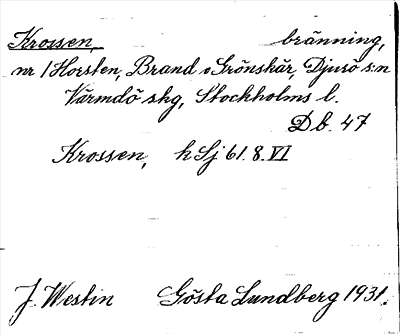 Krossen, bränning,
nr 1 Horsten, Brand o Grönskär, Djurö s:n
Värmdö skg, Stockholms l.
Db. 47
Krossen, h Sj 61. 8. VI
J. Westin Gösta Lundberg 1931.